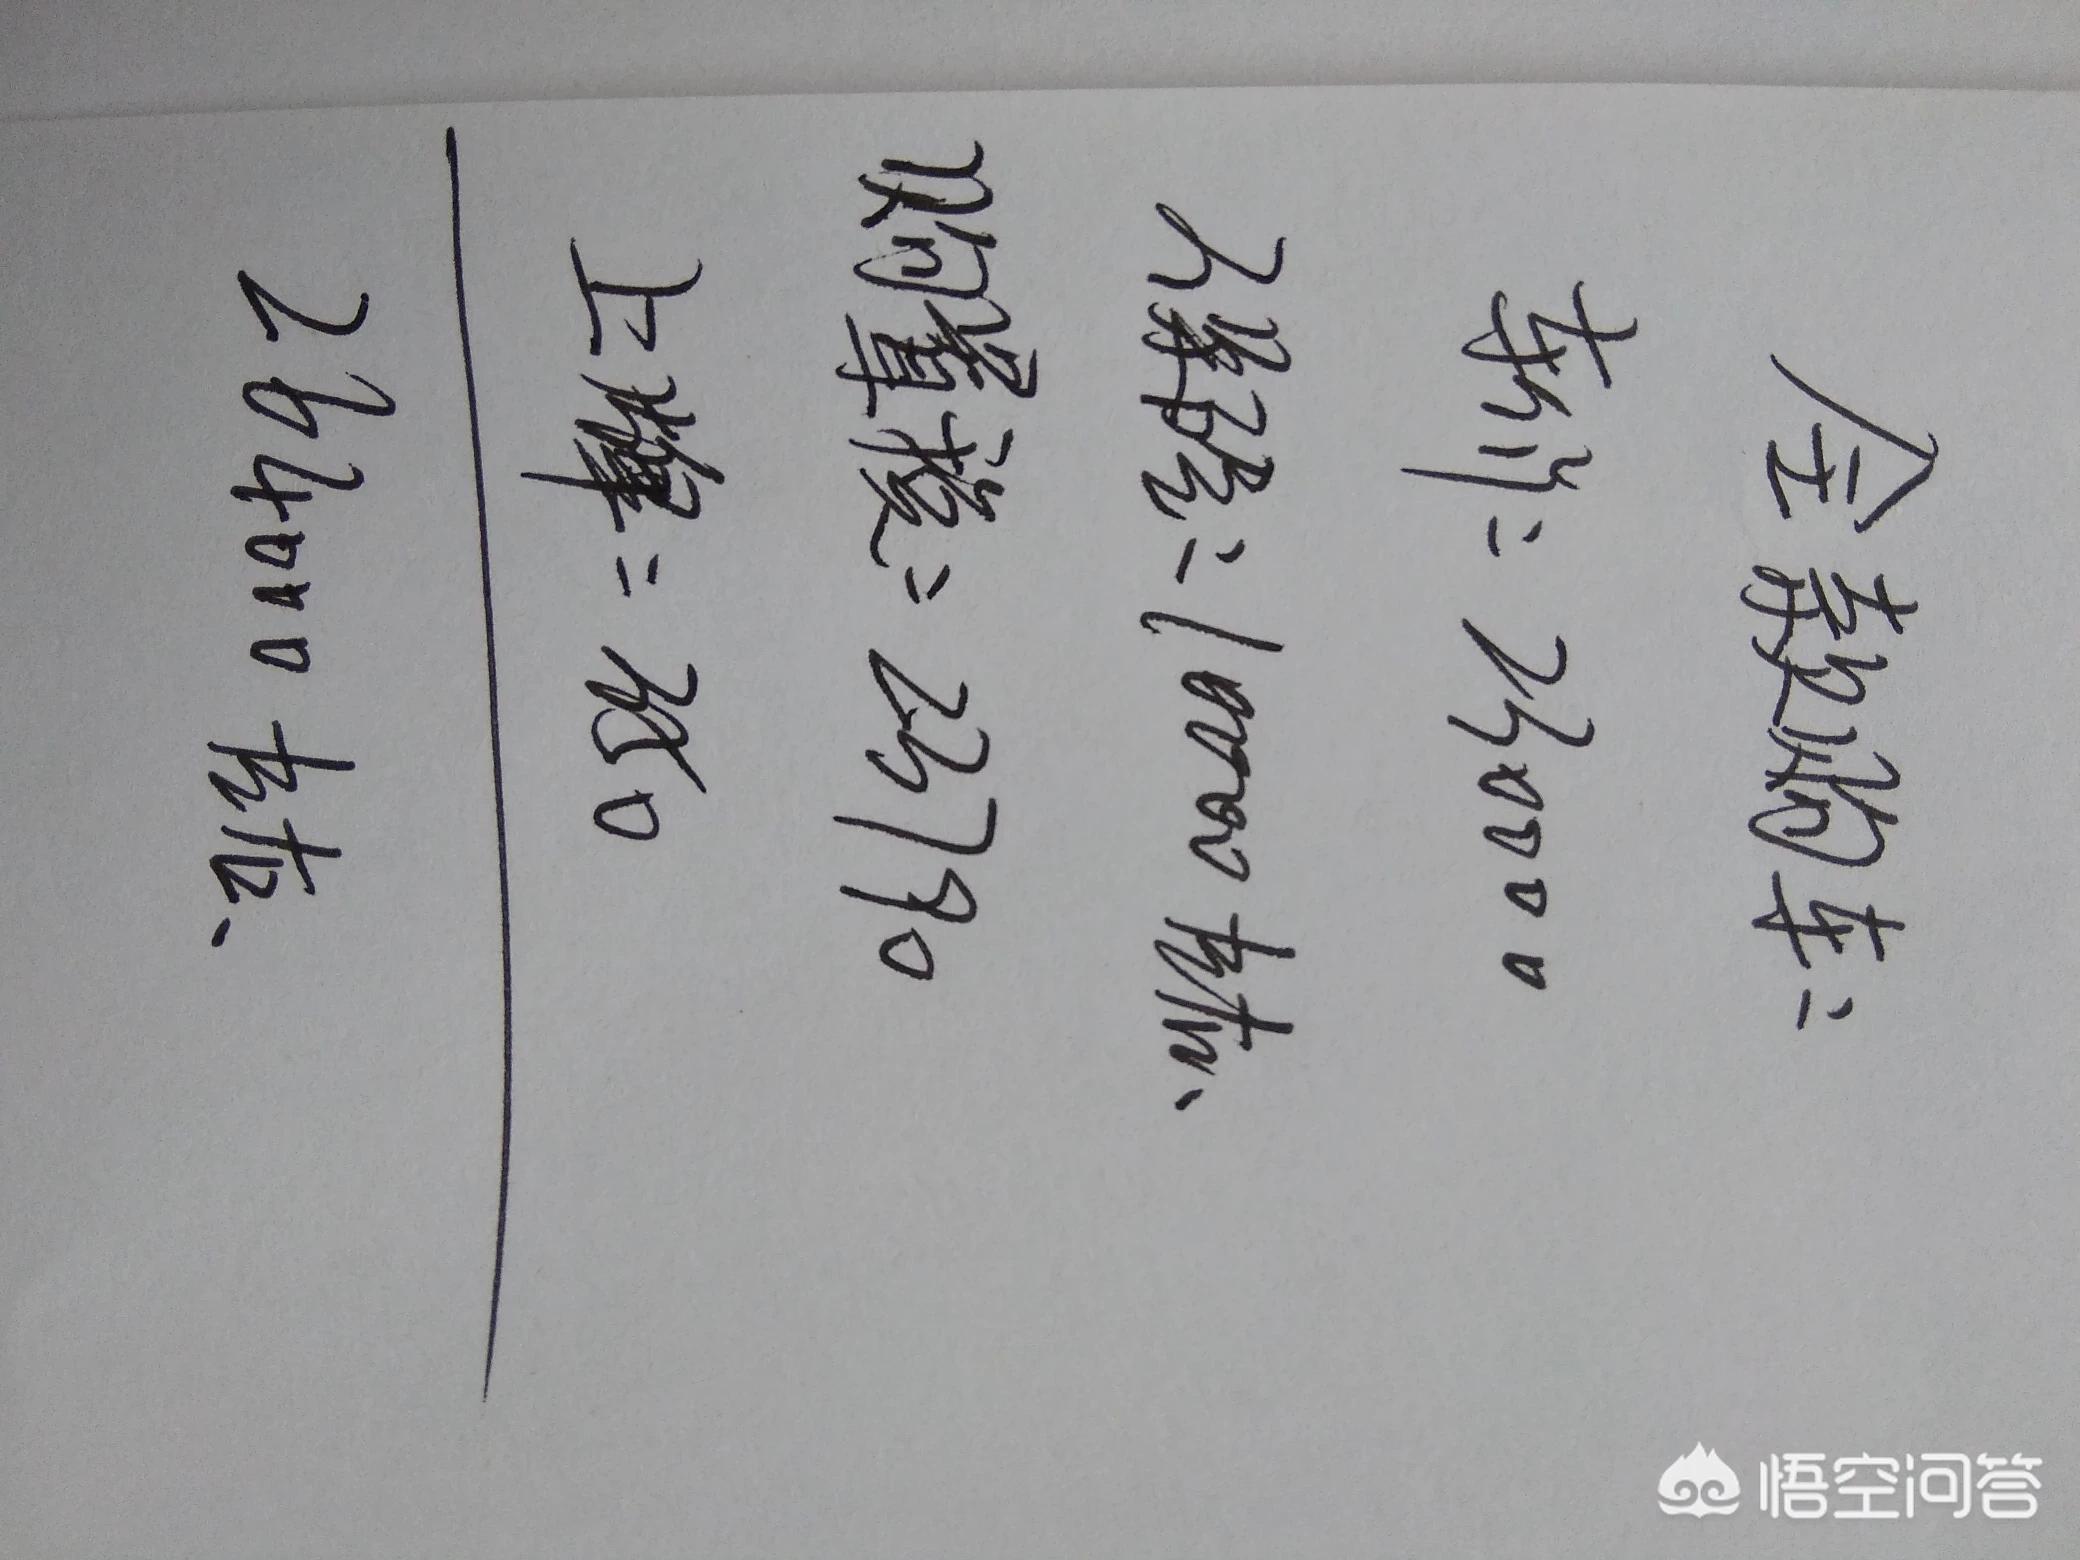 全款购车:
车价: 250000
保险: 10000左右、
购置税: 25790
上牌: 500
294000左右、
悟空问答